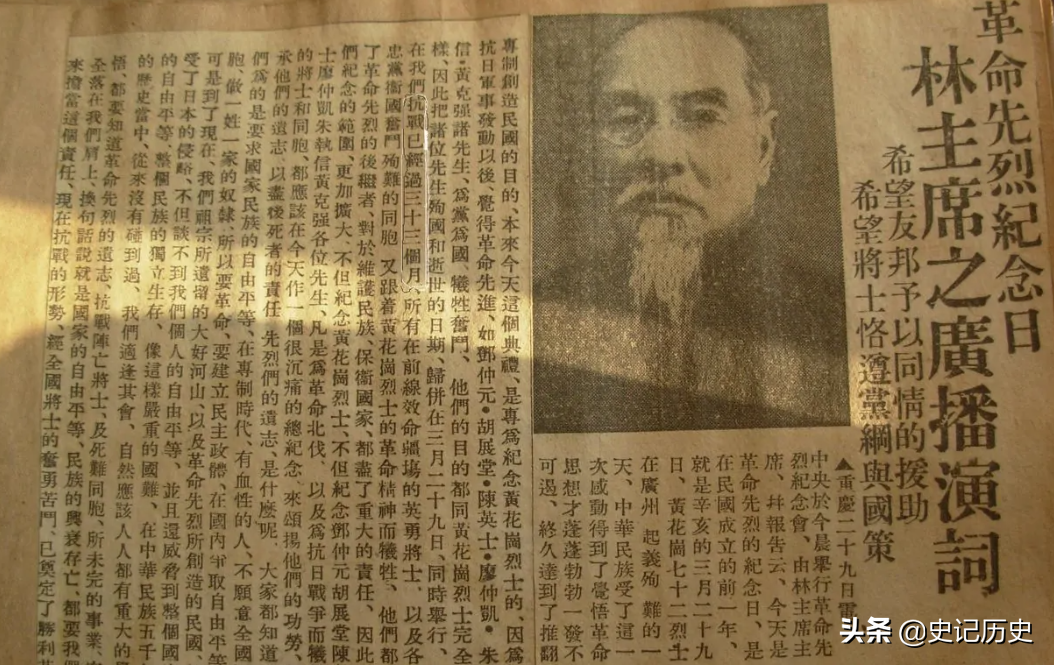 革命先烈紀念日
林主席之廣播演詞
希望友邦予以同情的援助
希望將士恪遵黨綱與國策
▲重慶二十九日電
中央於今晨舉行革命先
烈紀念會、由林主席主
席、幷報告云、今天是
革命先烈的紀念日、是
在民國成立的前一年、
就是辛亥的三月二十九
日、黃花崗七十二烈士
在廣州 起義殉難的一
天、中華民族受了這一
次感動得到了覺悟革命
思想才蓬蓬勃勃一發不
可遏、終久達到了推翻
專制創造民國的目的、本來今天這個典禮、是專爲紀念黃花崗烈士的、因爲
抗日軍事發動以後、覺得革命先進、如鄧仲元·胡展堂·陳英士·廖仲凱·朱
信·黃克强諸先生、爲黨爲國、犧牲奮鬥、他們的目的都同黃花崗烈士完全
樣、因此把諸位先生殉國和逝世的日期、歸併在三月二十九日、同時舉行、
在我們抗戰已經過三十三個月、所有在前線效命疆塲的英勇將士、以及各
忠黨衞國奮鬥殉難的同胞、又跟着黃花崗烈士的革命精神而犧牲、他們都
了革命先烈的後繼者、對於維護民族、保衞國家、都盡了重大的責任、因此
們紀念的範圍、更加擴大、不但紀念黃花崗烈士、不但紀念鄧仲元胡展堂陳
士廖仲凱朱執信黃克强各位先生、凡是爲革命北伐、以及爲抗日戰爭而犧
的將士和同胞、都應該在今天作一個很沉痛的總紀念、來頌揚他們的功勞、
承他們的遺志、以盡後死者的責任、先烈們的遺志、是什麽呢、大家都知道
們爲的是要求國家民族的自由平等、在專制時代、有血性的人、不願意全國
胞、做一姓一家的奴隸、所以要革命、要建立民主政體、在國內爭取自由平等
可是到了現在、我們祖宗所遺留的大好河山、以及革命先烈所創造的民國、
受了日本的侵略、不但談不到我們個人的自由平等、並且還威脅到整個國
的自由平等、整個民族的獨立生存、像這樣嚴重的國難、在中華民族五千
的歷史當中、從來沒有碰到過、我們適逢其會、自然應該人人都有重大的
悟、都要知道革命先烈的遺志、抗戰陣亡將士、及死難同胞、所未完的事業、
全落在我們肩上、換句話說就是國家的自由平等、民族的興衰存亡、都要我
來擔當這個責任、現在抗戰的形勢、經全國將士的奮勇苦鬥、已奠定了勝利
头条 @史记历史